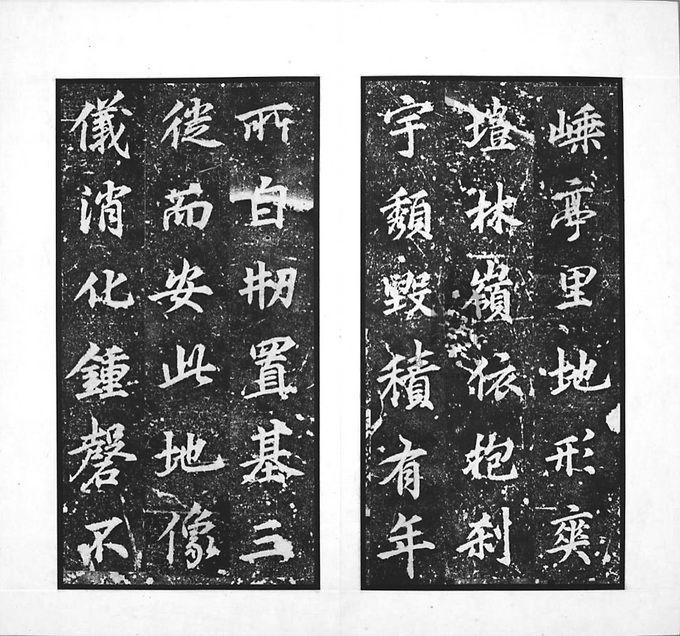 嵊亭里地形爽
塏林嶺依抱刹
宇頽毀積有年
所自剏置基三
徙而安此地像
儀消化鍾磬不